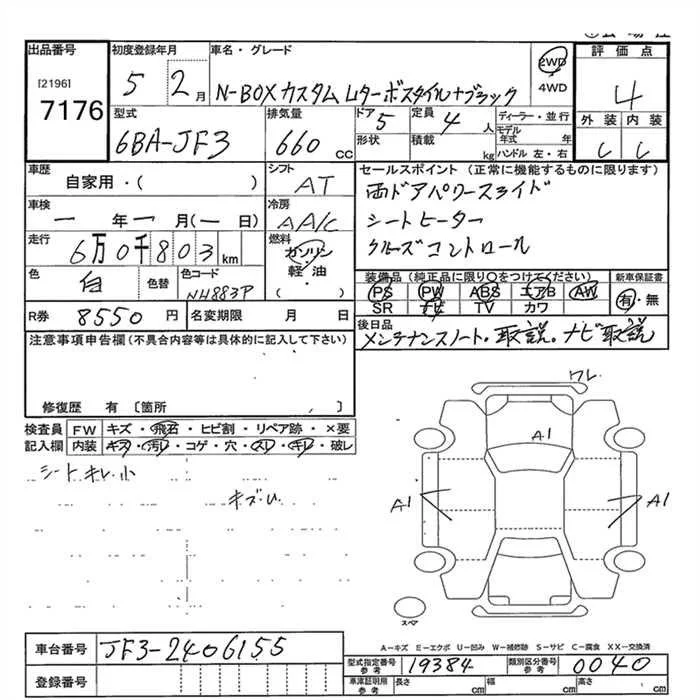 出品番号
[2196]
7176
初度登録年月
5 2月
車名・グレード
N-BOXカスタム Lターボスタイル+ブラック
2WD
4WD
評価点
4
外装 内装
C C
型式
6BA-JF3
排気量
660 cc
ドア
5
定員
4人
形状
積載
kg
ディーラー・並行
モデル年式 年
ハンドル 左・右
車歴
自家用・( )
シフト
AT
車検
一年一月(一日)
冷房
AA/C
走行
6万0千803km
燃料
ガソリン
軽・油
( )
色
白
色替
色コード
NH883P
R券
8550円
名変期限 月 日
セールスポイント (正常に機能するものに限ります)
両ドアパワースライド
シートヒーター
クルーズコントロール
装備品(純正品に限り○をつけてください)
PS PW ABS エアB AW
SR ナビ TV カワ
新車保証書
有・無
後日品
メンテナンスノート・取説・ナビ取説
注意事項申告欄(不具合内容等は具体的に記入して下さい)
修復歴 有 〔箇所 〕
検査員記入欄
FW キズ・飛石・ヒビ割・リペア跡・×要
内装 キズ・汚レ・コゲ・穴・スレ・キレ・破レ
シートキレ小
キズU
ワレ
A1
A1
A1
スペア
A-キズ E-エクボ U-凹み W-補修跡 S-サビ C-腐食 XX-交換済
車台番号
JF3-2406155
登録番号
型式指定番号 参考
19384
類別区分番号 参考
0040
車庫証明用 参考
長さ cm 幅 cm 高さ cm